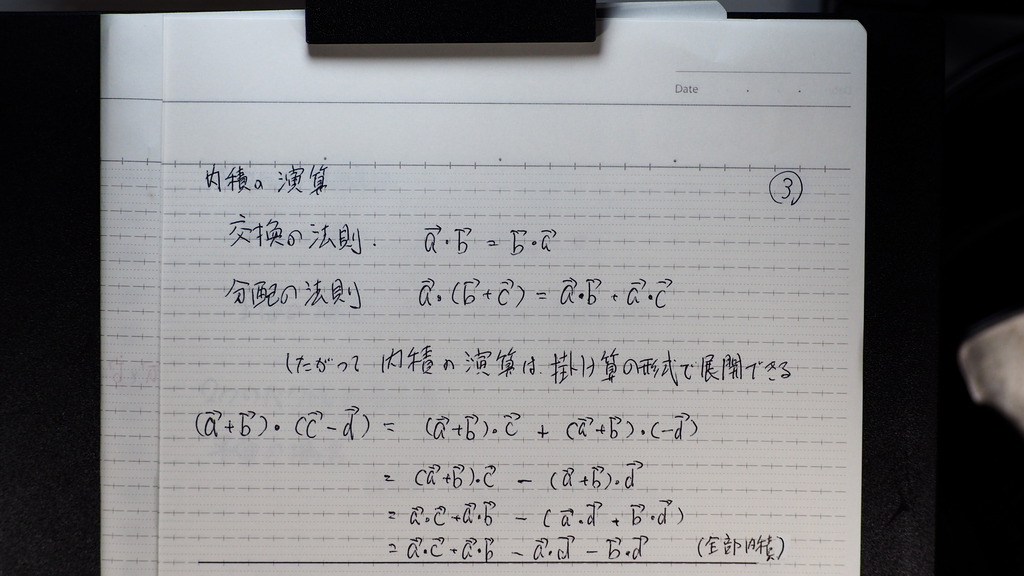 Date
内積の演算 ③
交換の法則. a⃗・b⃗ = b⃗・a⃗
分配の法則 a⃗・(b⃗+c⃗) = a⃗・b⃗ + a⃗・c⃗
したがって 内積の演算は、掛け算の形式で展開できる
(a⃗+b⃗)・(c⃗-d⃗) = (a⃗+b⃗)・c⃗ + (a⃗+b⃗)・(-d⃗)
= (a⃗+b⃗)・c⃗ - (a⃗+b⃗)・d⃗
= a⃗・c⃗+a⃗・b⃗ - (a⃗・d⃗ + b⃗・d⃗)
= a⃗・c⃗+a⃗・b⃗ - a⃗・d⃗ - b⃗・d⃗ (全部内積)